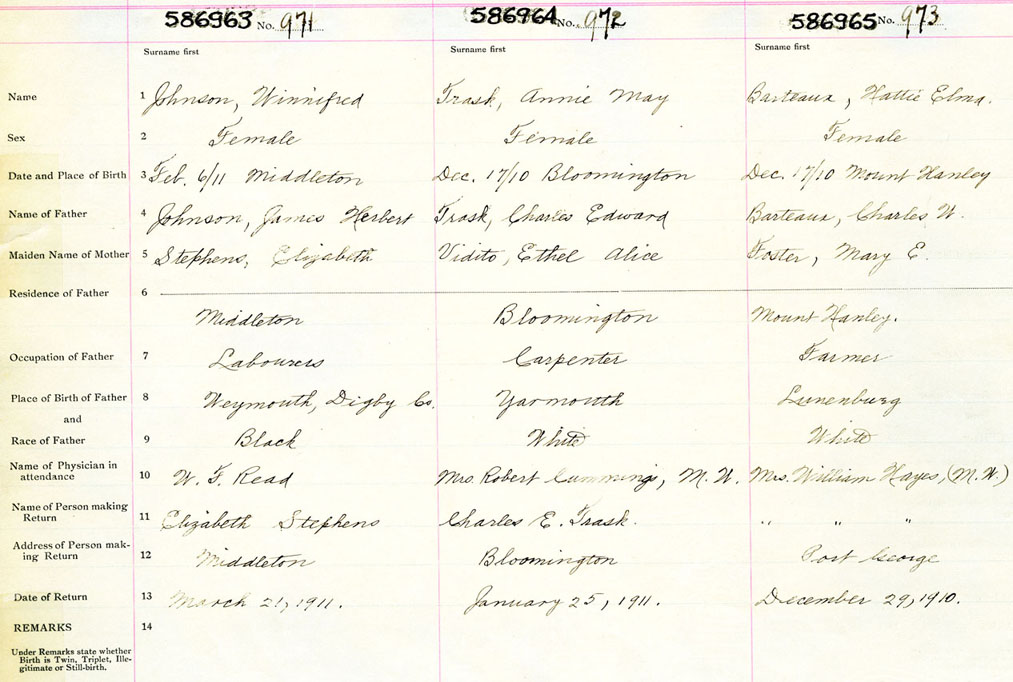 586963 No. 971 586964 No. 972 586965 No. 973
Surname first Surname first Surname first
Name 1 Johnson, Winnifred Trask, Annie May Barteaux, Hattie Elma.
Sex 2 Female Female Female
Date and Place of Birth 3 Feb. 6/11 Middleton Dec. 17/10 Bloomington Dec. 17/10 Mount Hanley
Name of Father 4 Johnson, James Herbert Trask, Charles Edward Barteaux, Charles W.
Maiden Name of Mother 5 Stephens, Elizabeth Vidito, Ethel Alice Foster, Mary E.
Residence of Father 6
Middleton Bloomington Mount Hanley.
Occupation of Father 7 Labourers Carpenter Farmer
Place of Birth of Father 8 Weymouth, Digby Co. Yarmouth Lunenburg
and
Race of Father 9 Black White White
Name of Physician in
attendance 10 W. F. Read Mrs. Robert Cummings, M. W. Mrs. William Hayes, (M.W.)
Name of Person making
Return 11 Elizabeth Stephens Charles E. Trask. " " "
Address of Person mak-
ing Return 12 Middleton Bloomington Port George
Date of Return 13 March 21, 1911. January 25, 1911. December 29, 1910.
REMARKS 14
Under Remarks state whether
Birth is Twin, Triplet, Ille-
gitimate or Still-birth.